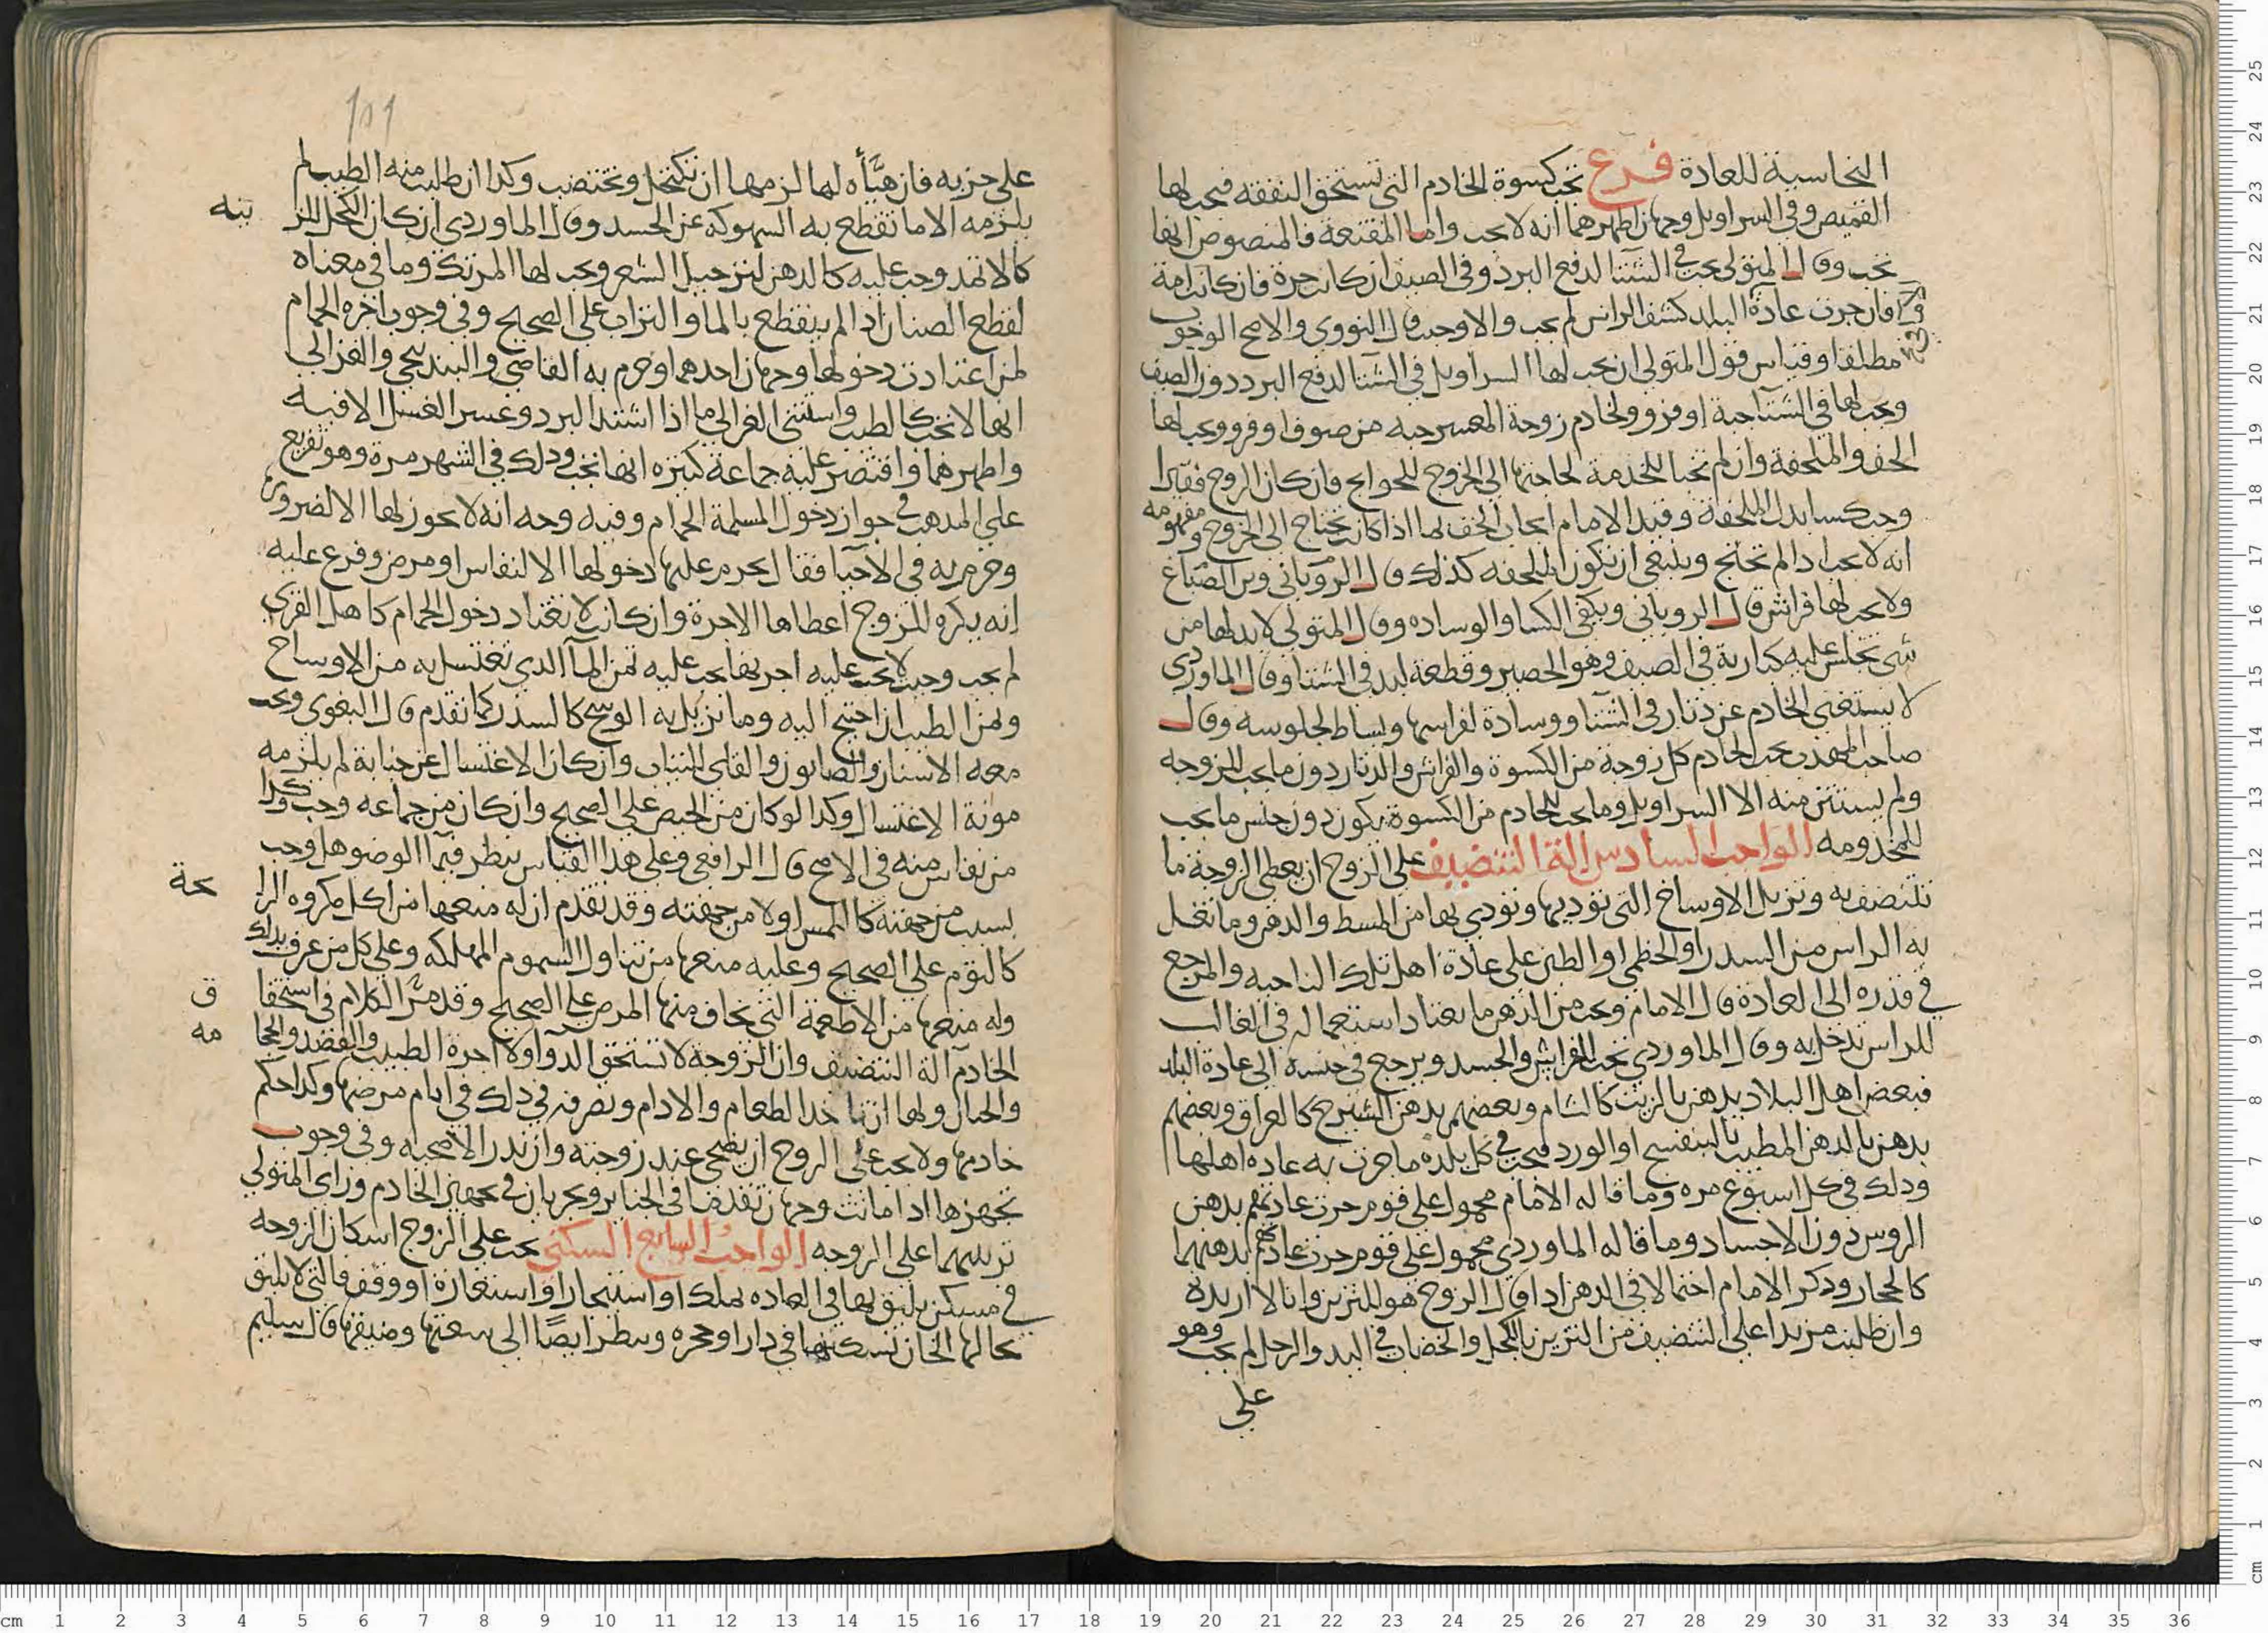 النحاسية للعادة فرع تجب كسوة الخادم التي تستحق النفقة فيجب لها
القميص وفي السراويل وجهان اظهرهما انه لا يجب واما المقنعة فالمنصوص انها
تجب وقال المتولي يجب في الشتا لدفع البرد وفي الصيف ان كانت حرة فان كانت امة
فان جرت عادة البلد كشف الراس لم يجب والا وجب قال النووي والاصح الوجوب
مطلقا وقياس قول المتولي ان يجب لها السراويل في الشتا لدفع البرد دون الصيف
ويجب لها في الشتا جبة او فرو ولخادم زوجة المعسر جبه من صوف او فرو ويجب لها
الخف والملحفة وان لم تجبا للخدمة لحاجتها الى الخروج للحوايج فان كان الزوج فقيرا
وجب كسا بدل الملحفة وقيد الامام ايجاب الخف لها اذا كانت تحتاج الى الخروج ومفهومه
انه لا يجب اذا لم تحتج وينبغي ان تكون الملحفه كذلك قال الروياني وبن الصباغ
ولا يجب لها فراش قال الروياني ويكفي الكسا والوساده وقال المتولي لا بد لها من
شي تجلس عليه كبارية في الصيف وهو الحصير وقطعة لبد في الشتا وقال الماوردي
لا يستغني الخادم عن دثار في الشتا ووسادة لفراسها وبساط لجلوسه وقال
صاحب المهذب يجب لخادم كل زوجة من الكسوة والفراش والدثار دون ما يجب للزوجه
ولم يستثن منه الا السراويل وما يجب للخادم من الكسوة يكون دون جنس ما يجب
للمخدومه الواجب السادس الة التنضيف على الزوج ان يعطي الزوجة ما
تتنضف به وتزيل الاوساخ التي توديها وتودي بها من المسط والدهن وما تغسل
به الراس من السدر او الخطمي او الطين على عادة اهل تلك الناحيه والمرجع
في قدره الى العادة قال الامام ويجب من الدهن ما يعتاد استعماله في الغالب
للراس تدخل به وقال الماوردي تجب للفراش والجسد ويرجع في جنسه الى عادة البلد
فبعض اهل البلاد يدهن بالزيت كالشام وبعضهم يدهن الشيرج كالعراق وبعضهم
يدهن بالدهن المطيب بالبنفسج او الورد فيجب في كل بلده ما جرت به عاده اهلها
وذلك في كل اسبوع مره وما قاله الامام محمول على قوم جرت عادتهم بدهن
الروس دون الاجساد وما قاله الماوردي محمول على قوم جرت عادتهم بدهنهما
كالحجاز وذكر الامام احتمالا في الدهن اذا قال الزوج هو للتزين وانا لا اريده
وان طلبت مزيدا على التنضيف من التزين بالكحل والخضاب في اليد والرجل لم يجب وهو
على
على حزبه فان هيَّأه لها لزمها ان تكتحل وتختضب وكذا ان طلبت منه الطيب لم
يلزمه الا ما تقطع به السهوكه عن الجسد وقال الماوردي ان كان الكحل للز ينه
كالاثمد وجب عليه كالدهن لترجيل الشعر ويجب لها المرتك وما في معناه
لقطع الصنان اذا لم ينقطع بالما والتراب على الصحيح وفي وجوب اجره الحمام
لمن اعتادت دخولها وجهان احدهما وجزم به القاضي والبندنيجي والغزالي
انها لا تجب كالطيب واستثنى الغزالي ما اذا اشتد البرد وعسر الغسل الا فيه
واظهرهما واقتصر عليه جماعة كثيره انها تجب وذلك في الشهر مرة وهو تفريع
على المذهب في جواز دخول المسلمة الحمام وفيه وجه انه لا يجوز لها الا لضرورة
وجزم به في الاحيا فقال يحرم عليها دخولها الا لنفاس او مرض وفرع عليه
انه يكره للزوج اعطاها الاجرة وان كانت لا تعتاد دخول الحمام كاهل القرى
لم يجب وحيث لا يجب عليه اجر بها يجب عليه ثمن الما الذي تغتسل به من الاوساخ
وثمن الطيب ان احتيج اليه وما تزيل به الوسخ كالسدر كما تقدم قال البغوي ويجب
معه الاشنان والصابون والقلي للثياب وان كان الاغتسال عن جنابة لم يلزمه
مونة الاغتسال وكذا لو كان من الحيض على الصحيح وان كان من جماعه وجب وكذا
من نفاس منه في الاصح قال الرافعي وعلى هذا القياس ينظر في ما الوضو هل وجب
بسبب من جهته كاللمس او لا من جهته وقد تقدم ان له منعها من اكل مكروه الرا يحة
كالثوم على الصحيح وعليه منعها من تناول السموم المهلكه وعلى كل من عرف بذلك
وله منعها من الاطعمة التي يخاف منها المرض على الصحيح وقد مرَّ الكلام في استحقا ق
الخادم آلة التنضيف وان الزوجة لا تستحق الدوا ولا اجرة الطبيب والفصد والحجا مه
والختان ولها ان تاخذ الطعام والادام وتصرفه في ذلك في ايام مرضها وكذا حكم
خادمها ولا يجب على الزوج ان يضحي عند زوجته وان نذر الاضحيه وفي وجوب
تجهزها اذا ماتت وجهان تقدما في الجنايز ويجريان في تجهيز الخادم وراى المتولي
ترتيبهما على الزوجه الواجب السابع السكنى يجب على الزوج اسكان الزوجه
في مسكن يليق بها في العاده بملك او استيجار او استعارة او وقف فالتي لا يليق
بحالها الخان تسكنها في دار او حجره وينظر ايضًا الى سعتها وضيقها قال سليم